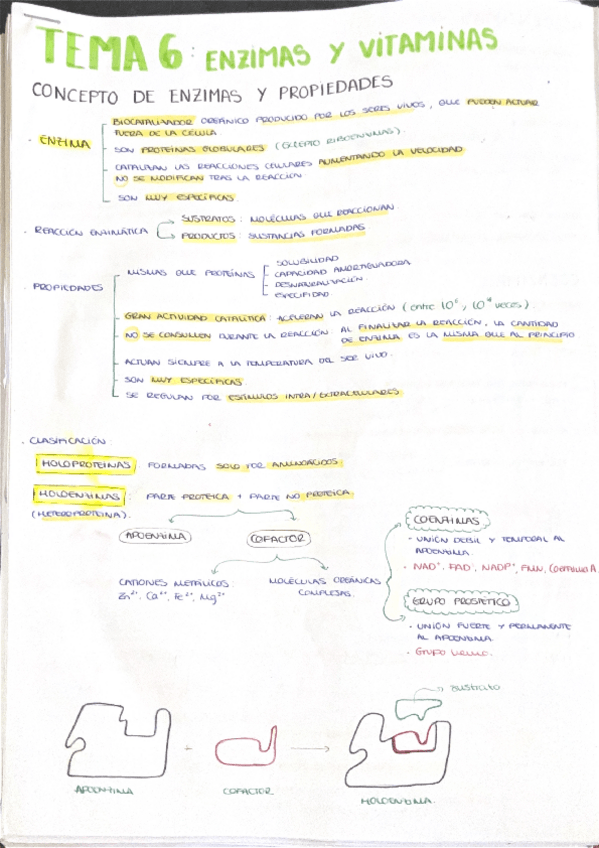 TEMA 6: ENZIMAS Y VITAMINAS
CONCEPTO DE ENZIMAS Y PROPIEDADES
· ENZIMA
BIOCATALIZADOR ORGÁNICO PRODUCIDO POR LOS SERES VIVOS, QUE PUEDEN ACTUAR
FUERA DE LA CÉLULA.
- SON PROTEÍNAS GLOBULARES (EXCEPTO RIBOENZIMAS).
- CATALIZAN LAS REACCIONES CELULARES AUMENTANDO LA VELOCIDAD
NO SE MODIFICAN TRAS LA REACCIÓN
- SON MUY ESPECÍFICAS.
· REACCIÓN ENZIMÁTICA
SUSTRATOS: MOLÉCULAS QUE REACCIONAN
PRODUCTOS: SUSTANCIAS FORMADAS.
· PROPIEDADES
- MISMAS QUE PROTEÍNAS
SOLUBILIDAD
- CAPACIDAD AMORTIGUADORA
- DESNATURALIZACIÓN
- ESPECIFIDAD.
- GRAN ACTIVIDAD CATALÍTICA: ACELERAN LA REACCIÓN (entre veces).
- NO SE CONSUMEN DURANTE LA REACCIÓN. AL FINALIZAR LA REACCIÓN, LA CANTIDAD
DE ENZIMA ES LA MISMA QUE AL PRINCIPIO
- ACTÚAN SIEMPRE A LA TEMPERATURA DEL SER VIVO.
- SON MUY ESPECÍFICAS
- SE REGULAN POR ESTÍMULOS INTRA/EXTRACELULARES
· CLASIFICACIÓN:
HOLOPROTEINAS: FORMADAS SOLO POR AMINOÁCIDOS
HOLOENZIMAS: PARTE PROTEICA + PARTE NO PROTEICA
(HETEROPROTEÍNA).
APOENZIMA
COFACTOR
CATIONES METÁLICOS:
Zn²⁺, Ca²⁺, Fe²⁺, Mg²⁺
MOLÉCULAS ORGÁNICAS
COMPLEJAS.
COENZIMAS
· UNIÓN DÉBIL Y TEMPORAL AL
APOENZIMA.
· NAD⁺, FAD, NADP⁺, FMN, COENZIMA A.
GRUPO PROSTÉTICO
· UNIÓN FUERTE Y PERMANENTE
AL APOENZIMA.
· Grupo hemo.
sustrato
+
APOENZIMA
COFACTOR
HOLOENZIMA.